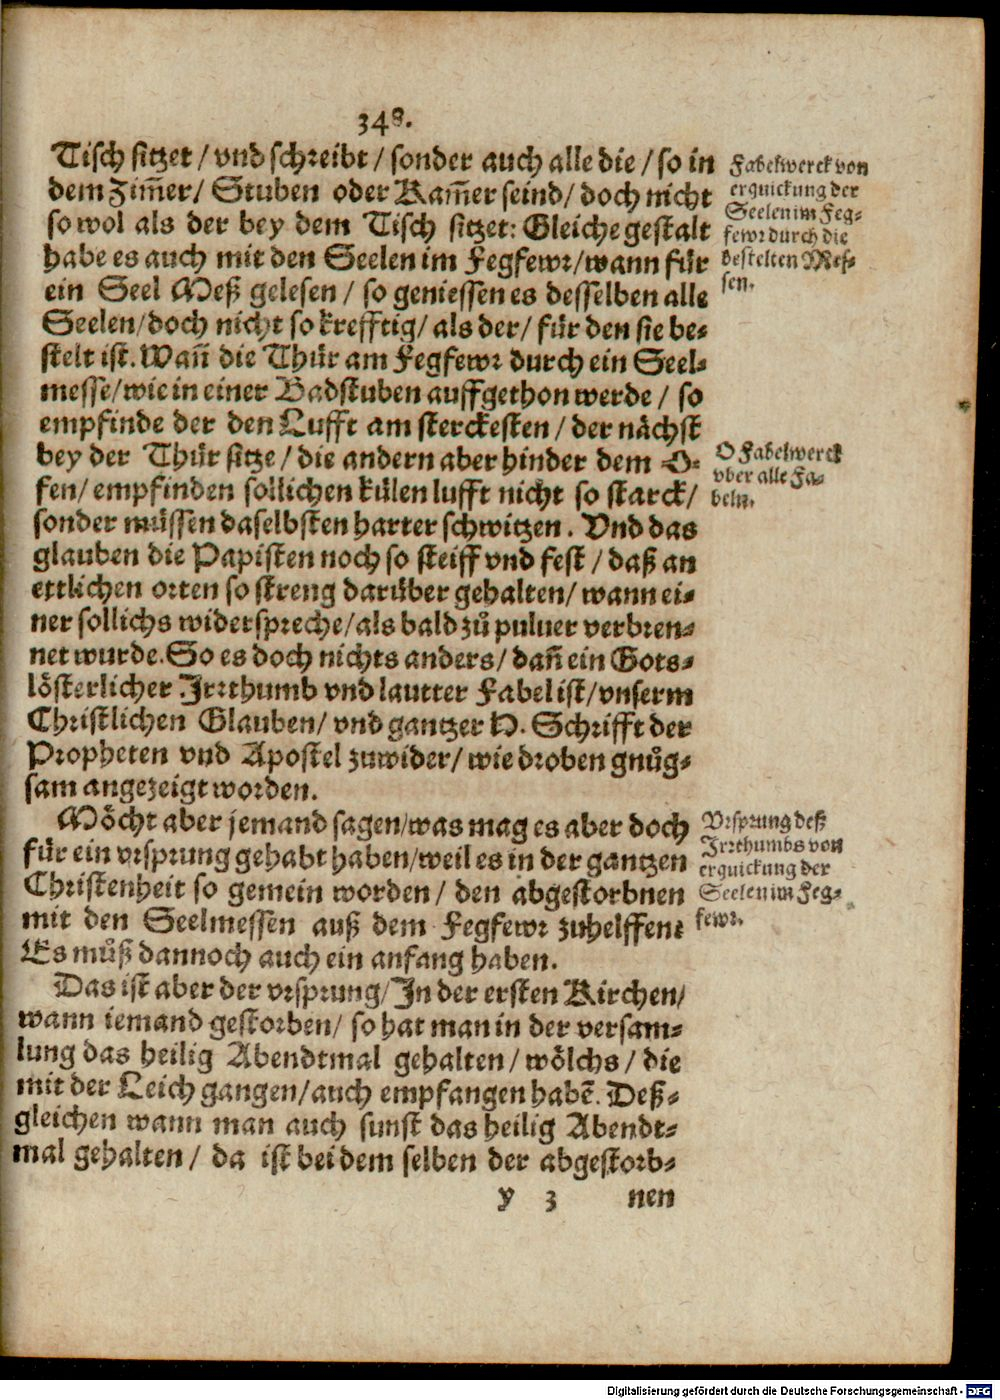 348.
Tisch sitzet / vnd schreibt / sonder auch alle die / so in
dem Zim̃er / Stuben oder Kam̃er seind / doch nicht
so wol als der bey dem Tisch sitzet: Gleiche gestalt
habe es auch mit den Seelen im Fegfewr / wann für
ein Seel Meß gelesen / so geniessen es desselben alle
Seelen / doch nicht so krefftig / als der / für den sie be-
stelt ist. Wañ die Thür am Fegfewr durch ein Seel-
messe / wie in einer Badstuben auffgethon werde / so
empfinde der den Lufft am sterckesten / der nächst
bey der Thür sitze / die andern aber hinder dem O-
fen / empfinden sollichen külen lufft nicht so starck /
sonder müssen daselbsten harter schwitzen. Vnd das
glauben die Papisten noch so steiff vnd fest / daß an
ettlichen orten so streng darüber gehalten / wann ei-
ner sollichs widerspreche / als bald zů puluer verbren-
net wurde. So es doch nichts anders / dañ ein Gots-
lösterlicher Irrthumb vnd lautter Fabel ist / vnserm
Christlichen Glauben / vnd gantzer H. Schrifft der
Propheten vnd Apostel zuwider / wie droben gnůg-
sam angezeigt worden.
Möcht aber jemand sagen / was mag es aber doch
für ein vrsprung gehabt haben / weil es in der gantzen
Christenheit so gemein worden / den abgestorbnen
mit den Seelmessen auß dem Fegfewr zuhelffen?
Es můß dannoch auch ein anfang haben.
Das ist aber der vrsprung / In der ersten Kirchen /
wann iemand gestorben / so hat man in der versam-
lung das heilig Abendtmal gehalten / wölchs / die
mit der Leich gangen / auch empfangen habẽ. Deß-
gleichen wann man auch sunst das heilig Abendt-
mal gehalten / da ist bei dem selben der abgestorb-
y 3 nen
Fabelwerck von
erquickung der
Seelen im Feg-
fewr durch die
bestelten Mes-
sen.
O Fabelwerck
vber alle Fa-
beln.
Vrsprung deß
Irrthumbs von
erquickung der
Seelen im Feg-
fewr.
Digitalisierung gefördert durch die Deutsche Forschungsgemeinschaft - DFG